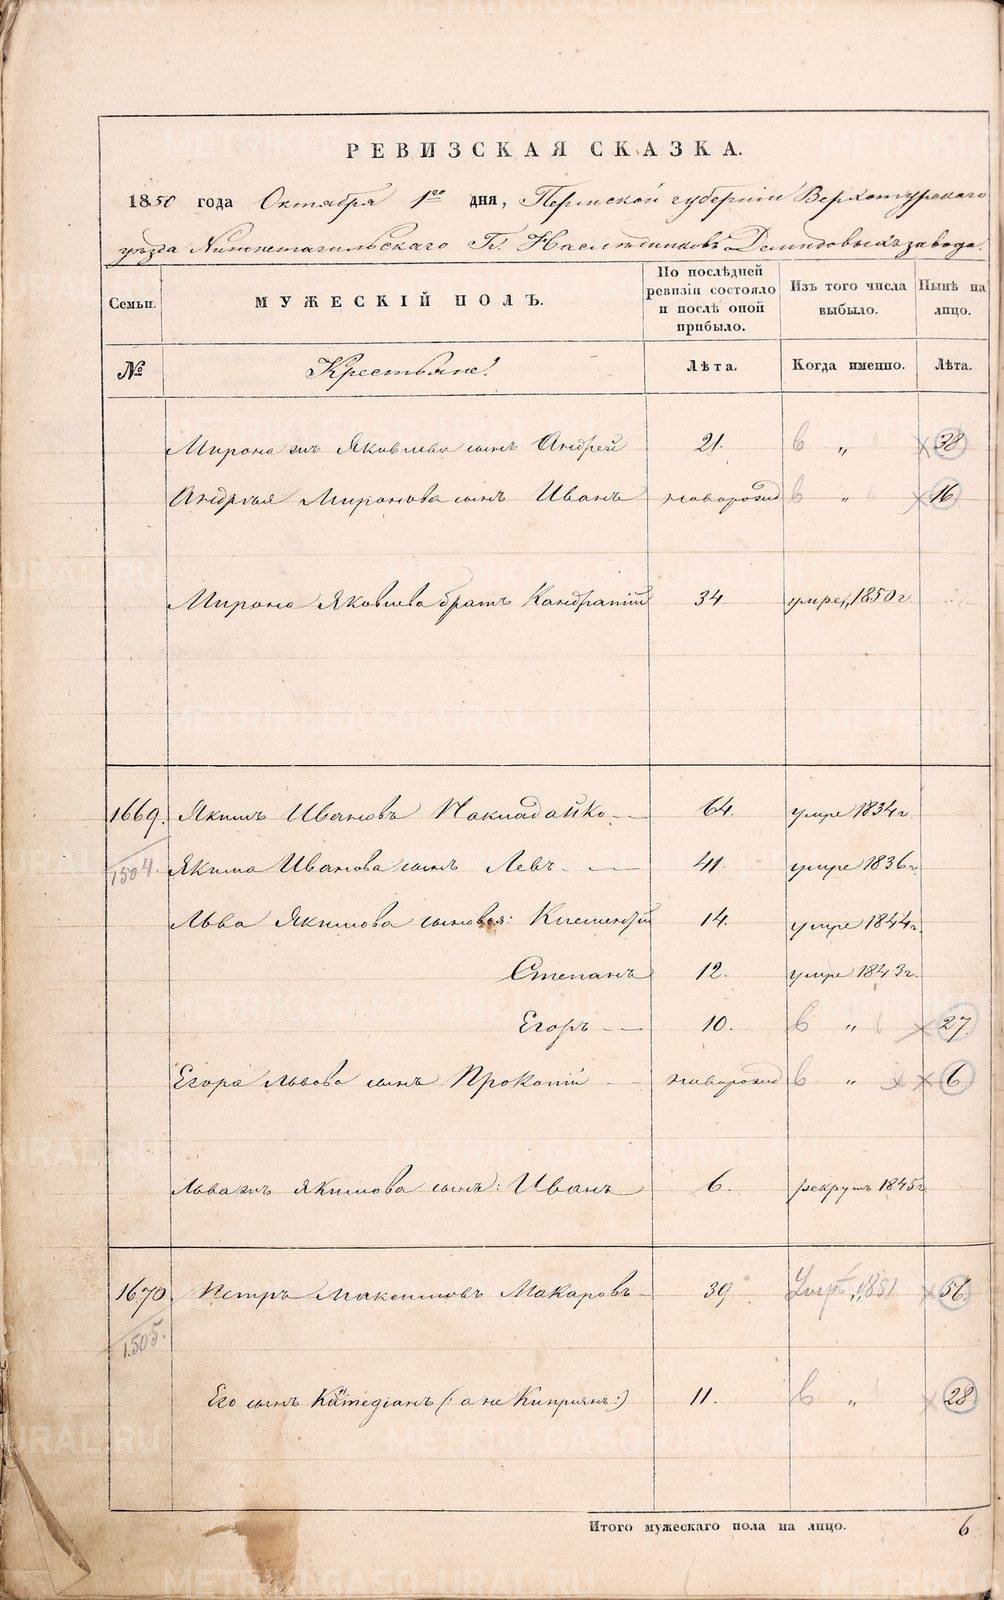 РЕВИЗСКАЯ СКАЗКА.
1850 года Октября 1го дня, Пермской губернии Верхотурскаго
уѣзда Нижнетагильскаго Гг. Наслѣдниковъ Демидовыхъ завода.
Семьи. МУЖЕСКІЙ ПОЛЪ. По послѣдней ревизіи состояло и послѣ оной прибыло. Изъ того числа выбыло. Нынѣ на лицо.
№ Крестьяне. Лѣта. Когда именно. Лѣта.
Мирона Яковлева сынъ Андрей 21. в „ 38
Андрея Миронова сынъ Иванъ новорожд в „ 16
Мирона Яковлева братъ Кондратій 34 умре 1850 г
1669. Якимъ Ивановъ Покладайко 64. умре 1834 г.
1504. Якима Иванова сынъ Левъ 41. умре 1836 г.
Льва Якимова сыновья: Климентій 14. умре 1844 г.
Степанъ 12. умре 1843 г.
Егоръ 10. в „ 27
Егора Львова сынъ Прокопій новорожд в „ 6
Льва Якимова сынъ: Иванъ 6. рекрутъ 1845 г
1670 Петръ Максимовъ Макаровъ 39 Умръ „ 1851 56
1505.
Его сынъ (: а не Кипріянъ :) 11. в „ 28
Итого мужескаго пола на лицо. 6
METRIKI.GASO-URAL.RU